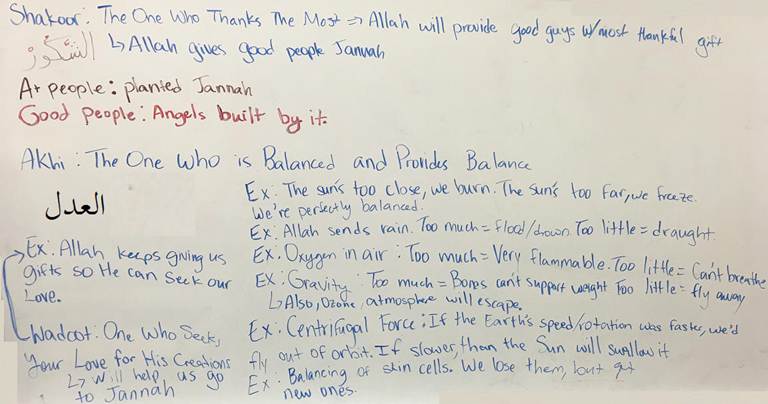 Shakoor: The One Who Thanks The Most => Allah will provide good guys w/most thankful gift
الشَّكُورُ
↳Allah gives good people Jannah
A+ people: planted Jannah
Good people: Angels built by it.
Akhi: The One who is Balanced and Provides Balance
العدل
Ex: The sun's too close, we burn. The sun's too far, we freeze.
We're perfectly balanced.
Ex: Allah sends rain. Too much = flood/drown. Too little = draught.
Ex: Oxygen in air: Too much = Very flammable. Too little = Can't breathe
Ex: Gravity: Too much = Bones can't support weight Too little = fly away
↳Also, Ozone, atmosphere will escape.
Ex: Centrifugal Force: If the Earth's speed/rotation was faster, we'd
fly out of orbit. If slower, than the Sun will swallow it
Ex: Balancing of skin cells. We lose them, but get
new ones.
Ex: Allah keeps giving us
gifts so He can seek our
Love.
Wadoot: One Who Seeks
Your Love for His Creations
↳ Will help us go
to Jannah